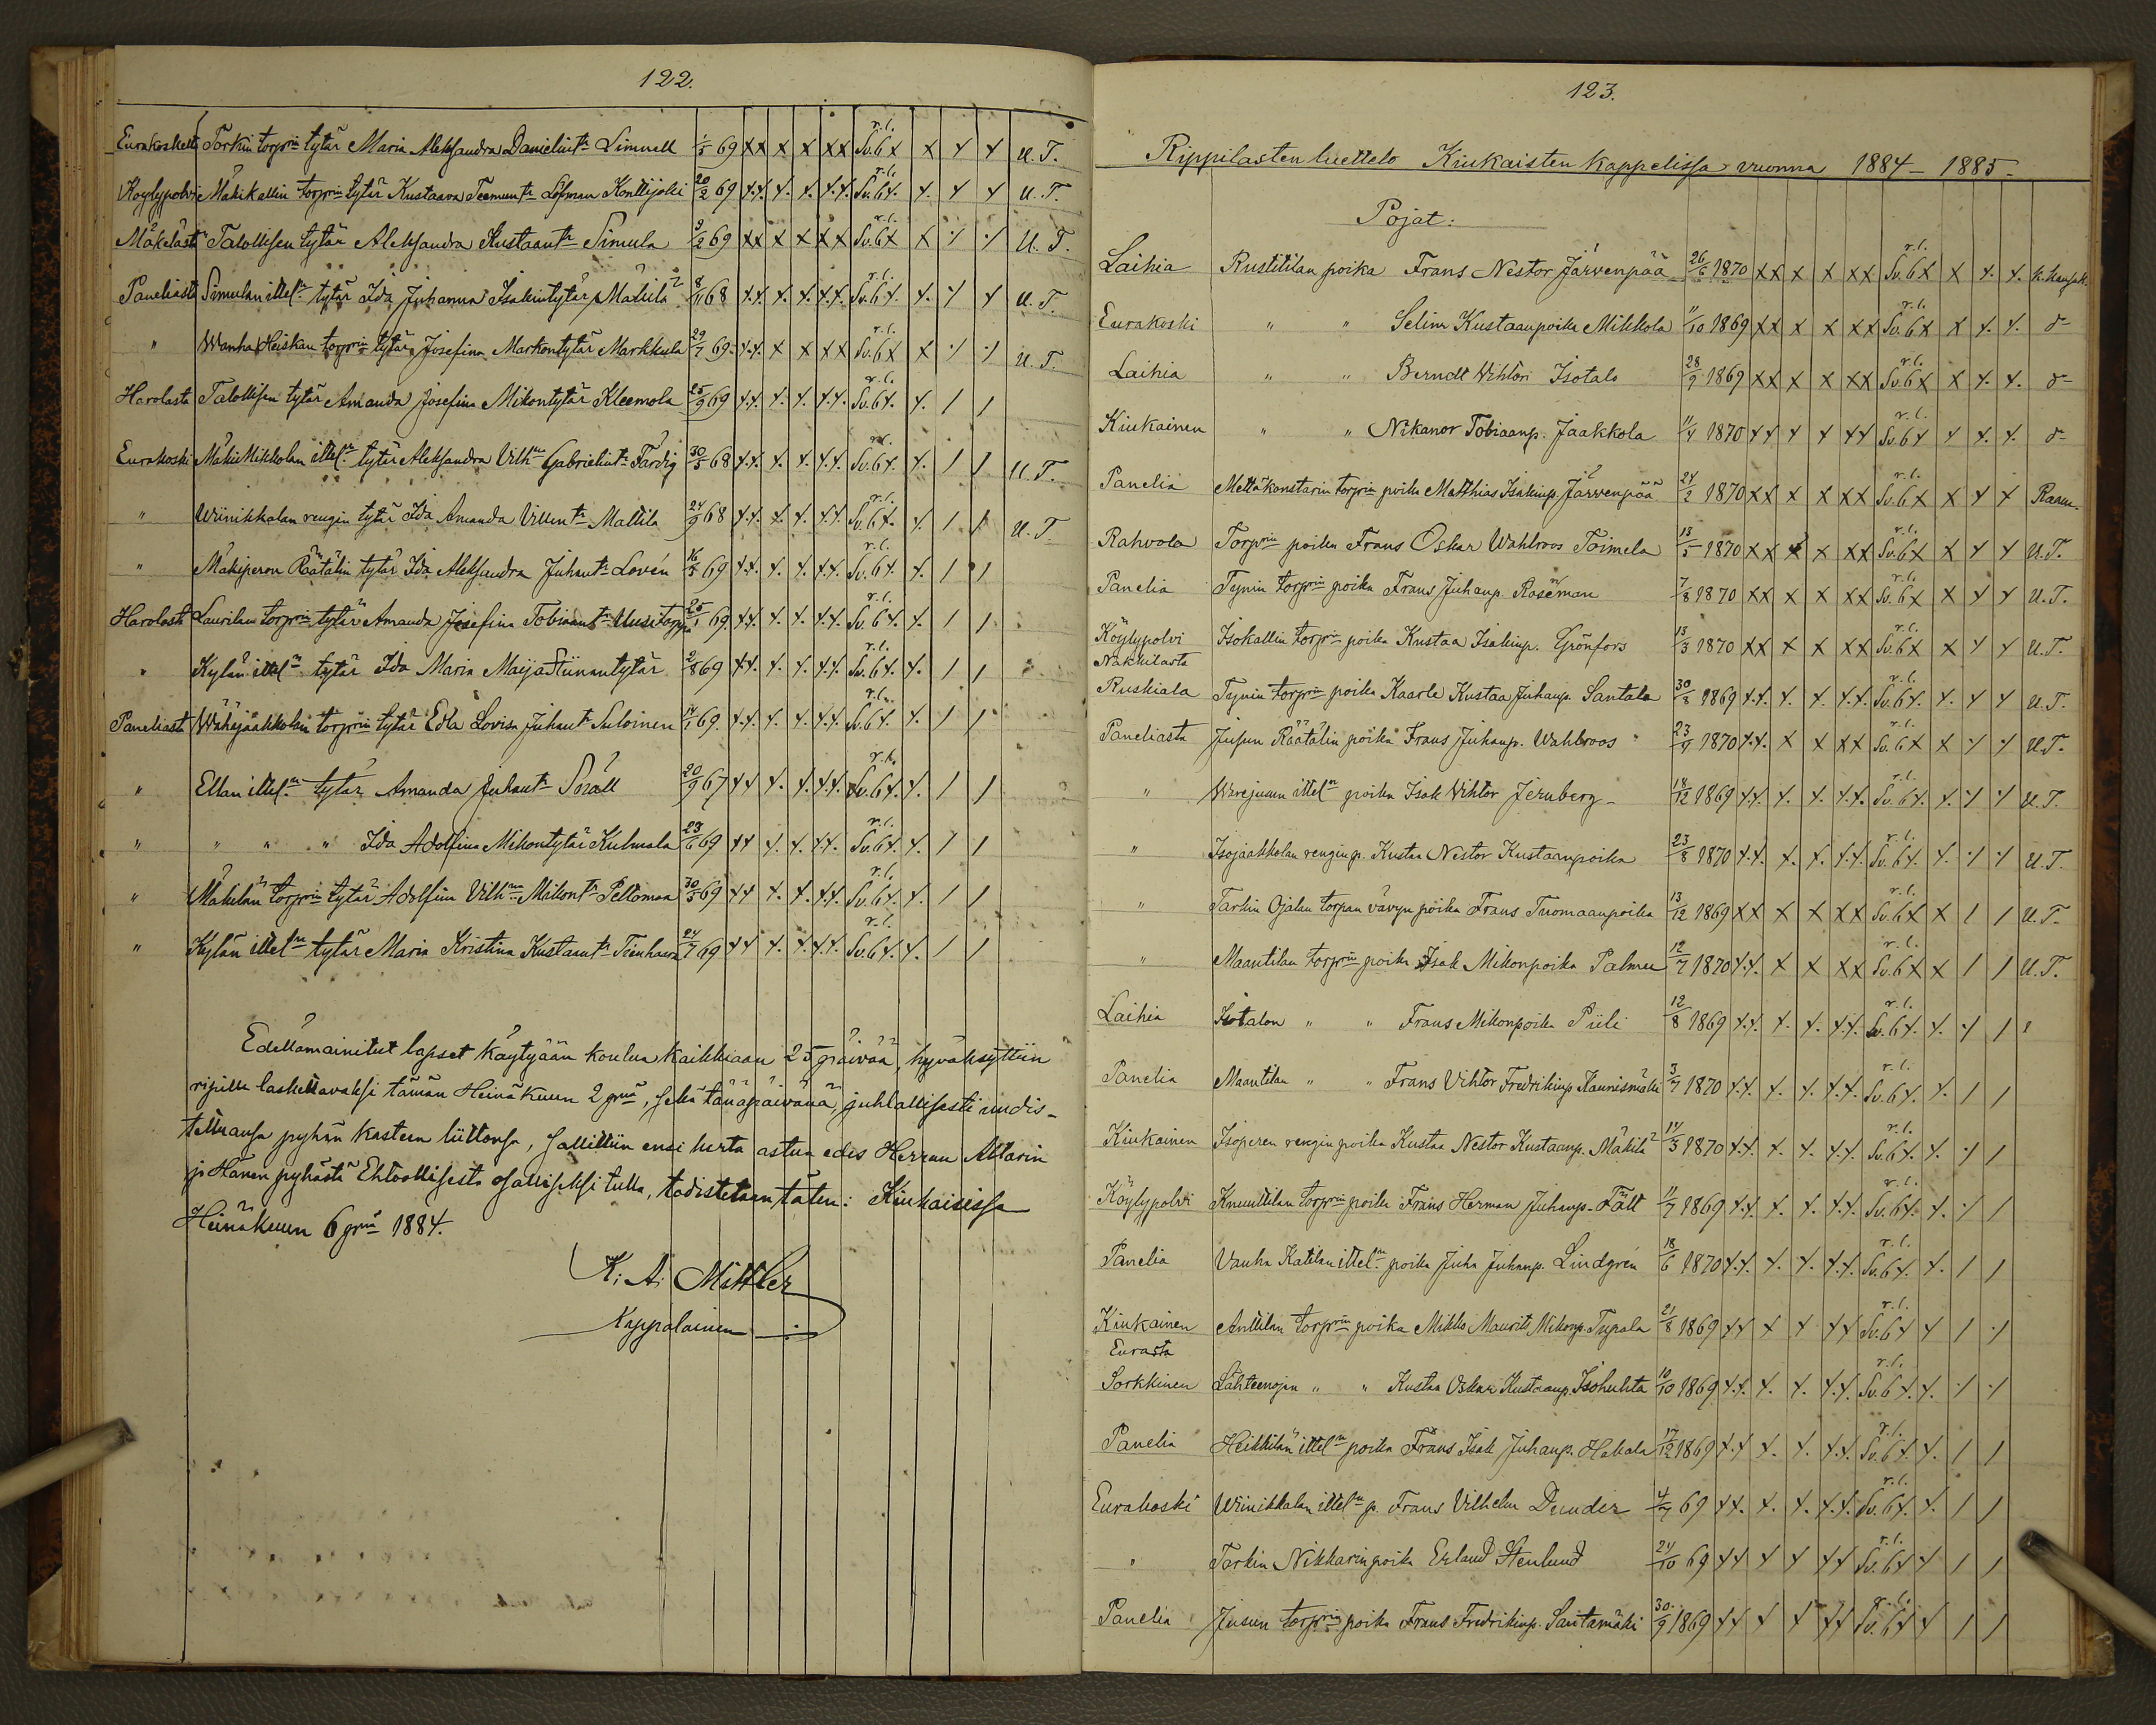 122.
Eurakoskelt Torkin torprin tytär Maria Aleksandra Danielintr Limnell 1/5 69 XX X X XX Sv.6X r.l. X X X U.T.
Köylypolvi Mäkikallin torprin tytär Kustaava Teemuntr Löfman Konttijoki 20/2 69 XX X X XX Sv.6X r.l. X X X U.T.
Mäkeläst Talollisen tytär Aleksandra Kustaantr Simula 3/2 69 XX X X XX Sv.6X r.l. X X X U.T.
Paneliasta Simulan itteln tytär Ida Juhanna Isakintytär Mäkilä 8/11 68 XX X X XX Sv.6X r.l. X X X U.T.
" Wanha Heiskan torprin tytär Josefina Markontytär Markkula 29/7 69 XX X X XX Sv.6X r.l. X X X U.T.
Harolasta Talollisen tytär Amanda Josefina Mikontytär Kleemola 25/9 69 XX X X XX Sv.6X r.l. X / /
Eurakoski Mäki Mikkolan itteln tytär Aleksandra Vilhna Gabrielintr Färdig 30/5 68 XX X X XX Sv.6X r.l. X / / U.T.
" Wiinikkalan rengin tytär Ida Amanda Villentr Mattila 24/9 68 XX X X XX Sv.6X r.l. X / / U.T.
" Mäkiperon Räätälin tytär Ida Aleksandra Juhantr Lovén 16/5 69 XX X X XX Sv.6X r.l. X / /
Harolast Laurilan torprin tytär Amanda Josefina Tobiaantr Uusitorppa 25/1 69 XX X X XX Sv.6X r.l. X / /
" Kylän itteln tytär Ida Maria Maija Stiinantytär 2/8 69 XX X X XX Sv.6X r.l. X / /
Paneliasta Wähäjaakkolan torprin tytär Edla Lovisa Juhantr Suloinen 14/1 69 XX X X XX Sv.6X r.l. X / /
" Ellan itteln tytär Amanda Juhantr Soräll 20/9 67 XX X X XX Sv.6X r.k. X / /
" " " " Ida Adolfina Mikontytär Kulmala 23/6 69 XX X X XX Sv.6X r.l. X / /
" Mäkilän torprin tytär Adolfina Vilhna Mikontr Peltomaa 30/5 69 XX X X XX Sv.6X r.l. X / /
" Kylän itteln tytär Maria Kristina Kustaantr Tienhaara 24/7 69 XX X X XX Sv.6X r.l. X / /
Edellämainitut lapset käytyään koulua kaikkiaan 25 päivää, hyväksyttiin
ripille laskettavaksi tämän Heinäkuun 2 pnä, sekä tänäpäivänä, juhlallisesti uudis-
tettuansa pyhän kasteen liittonsa, sallittiin ensi kerta astua edes Herran Altarin
ja Hänen pyhästä Ehtoollisesta osalliseksi tulla, todistetaan täten: Kiukaisissa
Heinäkuun 6 pnä 1884.
K: A: Mittler
Kappalainen
123.
Rippilasten luettelo Kiukaisten kappelissa vuonna 1884-1885-
Pojat:
Laihia Rustitilan poika Frans Nestor Järvenpää 26/6 1870 XX X X XX Sv.6X r.l. X X X
Eurakoski " " Selim Kustaanpoika Mikkola 11/10 1869 XX X X XX Sv.6X r.l. X X X
Laihia " " Berndt Wihtori Isotalo 28/9 1869 XX X X XX Sv.6X r.l. X X X
Kiukainen " " Nikanor Tobiaanp. Jaakkola 11/4 1870 XX X X XX Sv.6X r.l. X X X
Panelia Mettäkonstarin torprin poika Matthias Isakinp. Järvenpää 24/2 1870 XX X X XX Sv.6X r.l. X X X
Rahvola Torprin poika Frans Oskar Wahlroos Toimela 13/5 1870 XX X X XX Sv.6X r.l. X X X U.T.
Panelia Tynin torprin poika Frans Juhanp. Roseman 7/8 1870 XX X X XX Sv.6X r.l. X X X U.T.
Köylypolvi Isokallin torprin poika Kustaa Isakinp. Grönfors 13/3 1870 XX X X XX Sv.6X r.l. X X X U.T.
Nakkilasta
Ruskiala Tynin torprin poika Kaarle Kustaa Juhanp. Santala 30/8 1869 XX X X XX Sv.6X r.l. X X X U.T.
Paneliasta Jusun Räätälin poika Frans Juhanp. Wahlroos 23/4 1870 XX X X XX Sv.6X r.l. X X X U.T.
" Warejuun itteln poika Isak Wihtor Jernberg 18/12 1869 XX X X XX Sv.6X r.l. X X X U.T.
" Isojaakkolan rengin p. Kustaa Nestor Kustaanpoika 23/8 1870 XX X X XX Sv.6X r.l. X X X U.T.
" Tarkin Ojalan torpan vävyn poika Frans Tuomaanpoika 13/12 1869 XX X X XX Sv.6X r.l. X / / U.T.
" Maantilan torprin poika Isak Mikonpoika Palmu 12/7 1870 XX X X XX Sv.6X r.l. X / / U.T.
Laihia Isotalon " " Frans Mikonpoika Piili 12/8 1869 XX X X XX Sv.6X r.l. X X /
Panelia Maantilan " " Frans Vihtor Fredrikinp. Kaunismäki 3/7 1870 XX X X XX Sv.6X r.l. X / /
Kiukainen Isoperen rengin poika Kustaa Nestor Kustaanp. Mäkilä 14/3 1870 XX X X XX Sv.6X r.l. X X /
Köylypolvi Knuuttilan torprin poika Frans Herman Juhanp. Fält 11/7 1869 XX X X XX Sv.6X r.l. X X /
Panelia Vanha Katilan itteln poika Juha Juhanp. Lindgrén 18/6 1870 XX X X XX Sv.6X r.l. X / /
Kiukainen Anttilan torprin poika Mikko Maurits Mikonp. Tupala 21/8 1869 XX X X XX Sv.6X r.l. X / X
Eurasta
Sorkkinen Lähteenojan " " Kustaa Oskar Kustaanp. Isohuhta 10/10 1869 XX X X XX Sv.6X r.l. X X X
Panelia Heikkilän itteln poika Frans Isak Juhanp. Hakala 17/12 1869 XX X X XX Sv.6X r.l. X / /
Eurakoski Wiinikkalan itteln p. Frans Vilhelm Dunder 4/7 69 XX X X XX Sv.6X r.l. X / /
" Tarkin Nikkarin poika Erland Stenlund 24/10 69 XX X X XX Sv.6X r.l. X / /
Panelia Jusun torprin poika Frans Fredrikinp. Santamäki 30/9 1869 XX X X XX Sv.6X r.l. X / /